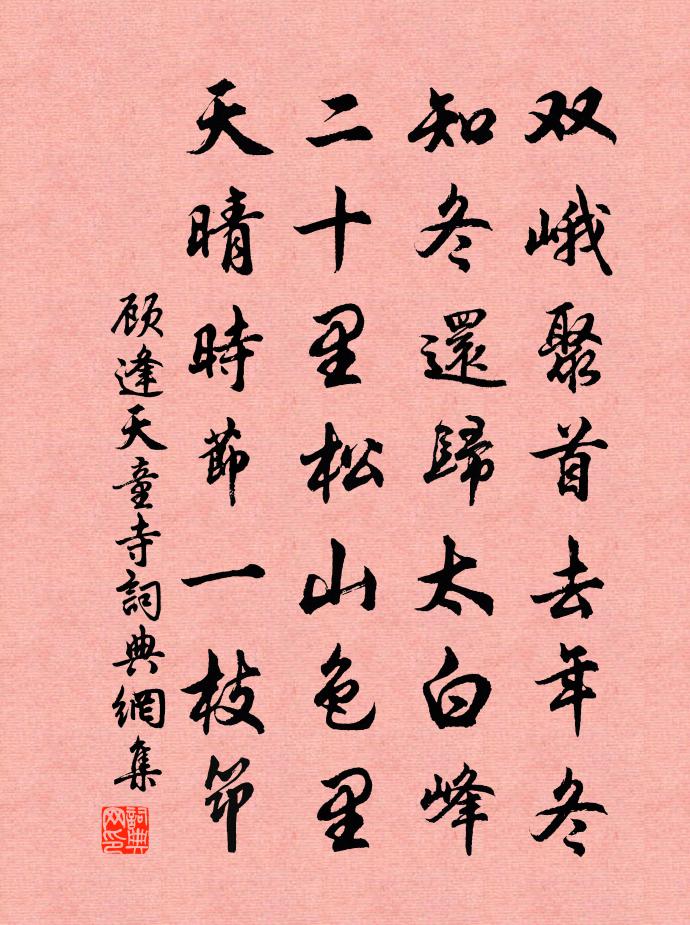 双峨聚首去年冬
知冬還歸太白峰
二十里松山色里
天晴時節一枝筇
顾逢天童寺詞典網集
詞典网印